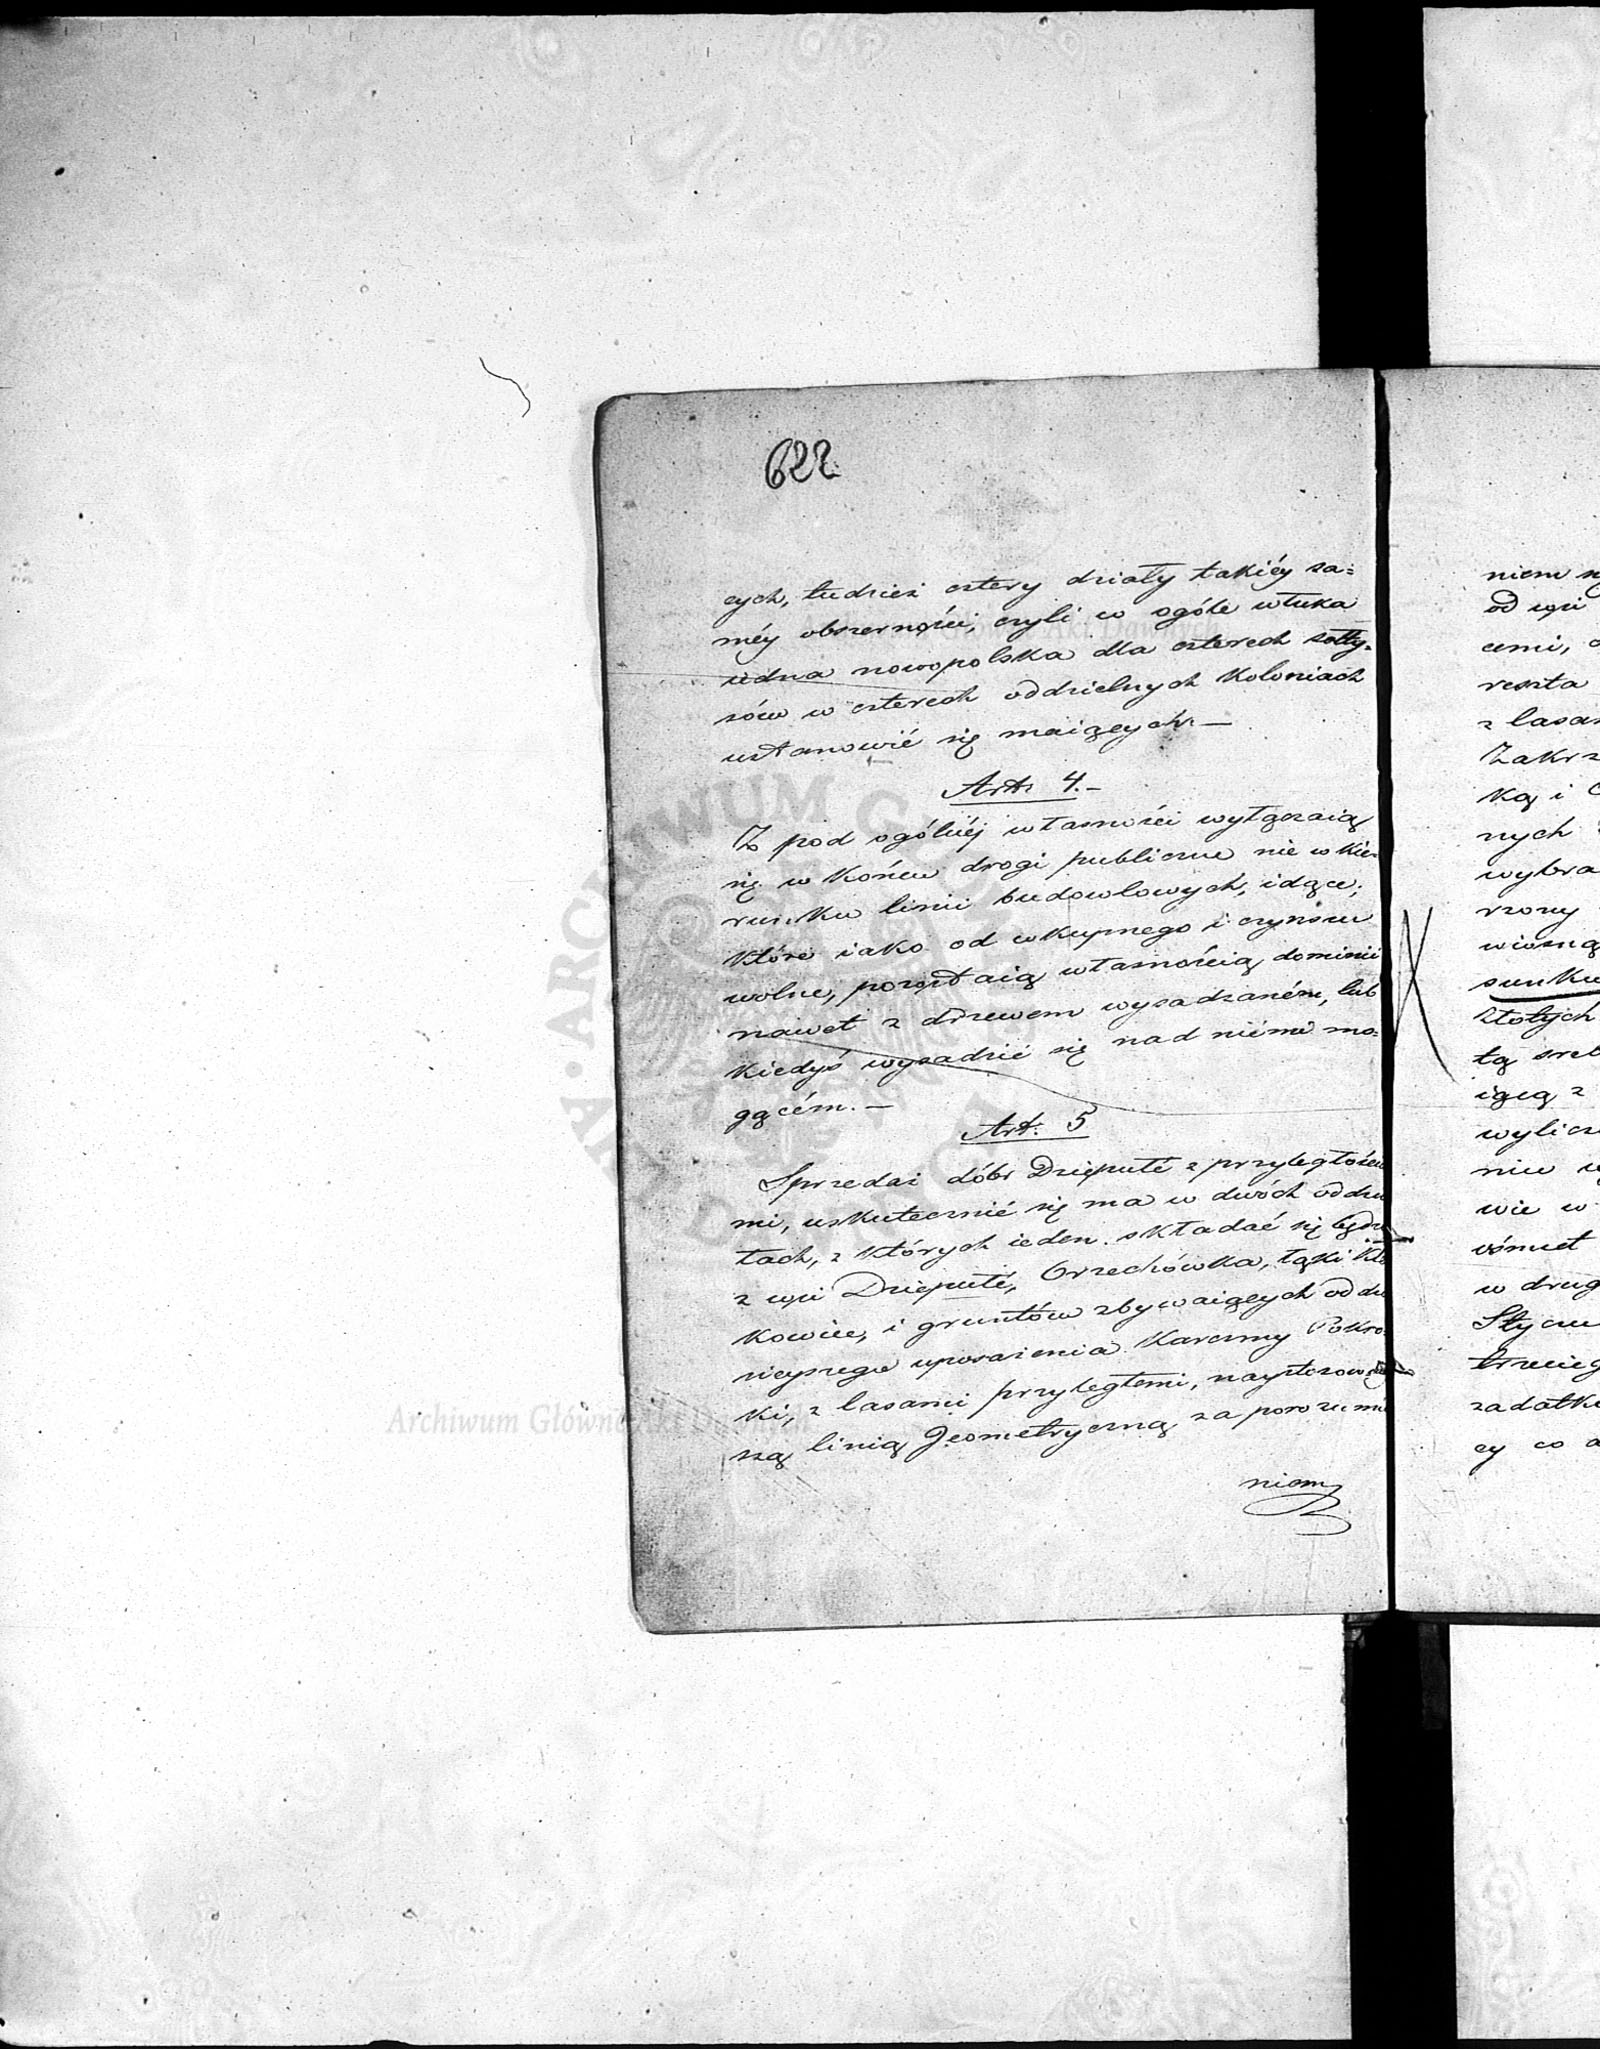 622
cych, tudzież cztery działy takiéy sa=
méy obszerności, czyli w ogóle włuka
iedna nowopolska dla czterech sołty=
sów w czterech oddzielnych Koloniach
ustanowić się maiących. —
Art. 4. —
Z pod ogólnéj własności wyłączaią
się w Końcu drogi publiczne nie w kie=
runku linii budowlowych, idące,
które iako od wkupnego i czynszu
wolne, pozostaią własnością dominii
nawet z drzewem wysadzaném, lub
kiedyś wysadzić się nad niémi mo=
gącém. —
Art. 5
Sprzedaż dóbr Dziepułć z przyległościa
mi, uskutecznić się ma w dwóch oddzia
łach, z których ieden składać się będzie
z wsi Dziepułć, Orzechówka, łąki
kowiec, i gruntów zbywaiących od du
nieyszego uposażenia Karczmy Pokro
ki, z lasami przyległemi, nayst​osow
szą linią Jeometryczną za porozumie
niem
niem
od wsi
cemi,
reszta
z lasa
Zakrz
ką i
nych
wybra
rzony
wiosną
sunku
złotych
tą sreb
iącą z
wylicz
niu
wie w
ośmset
w drug
Stycz
trzecieg
zadatk
cy co
Archiwum Główne Akt Dawnych
ARCHIWUM GŁÓWNE AKT DAWNYCH